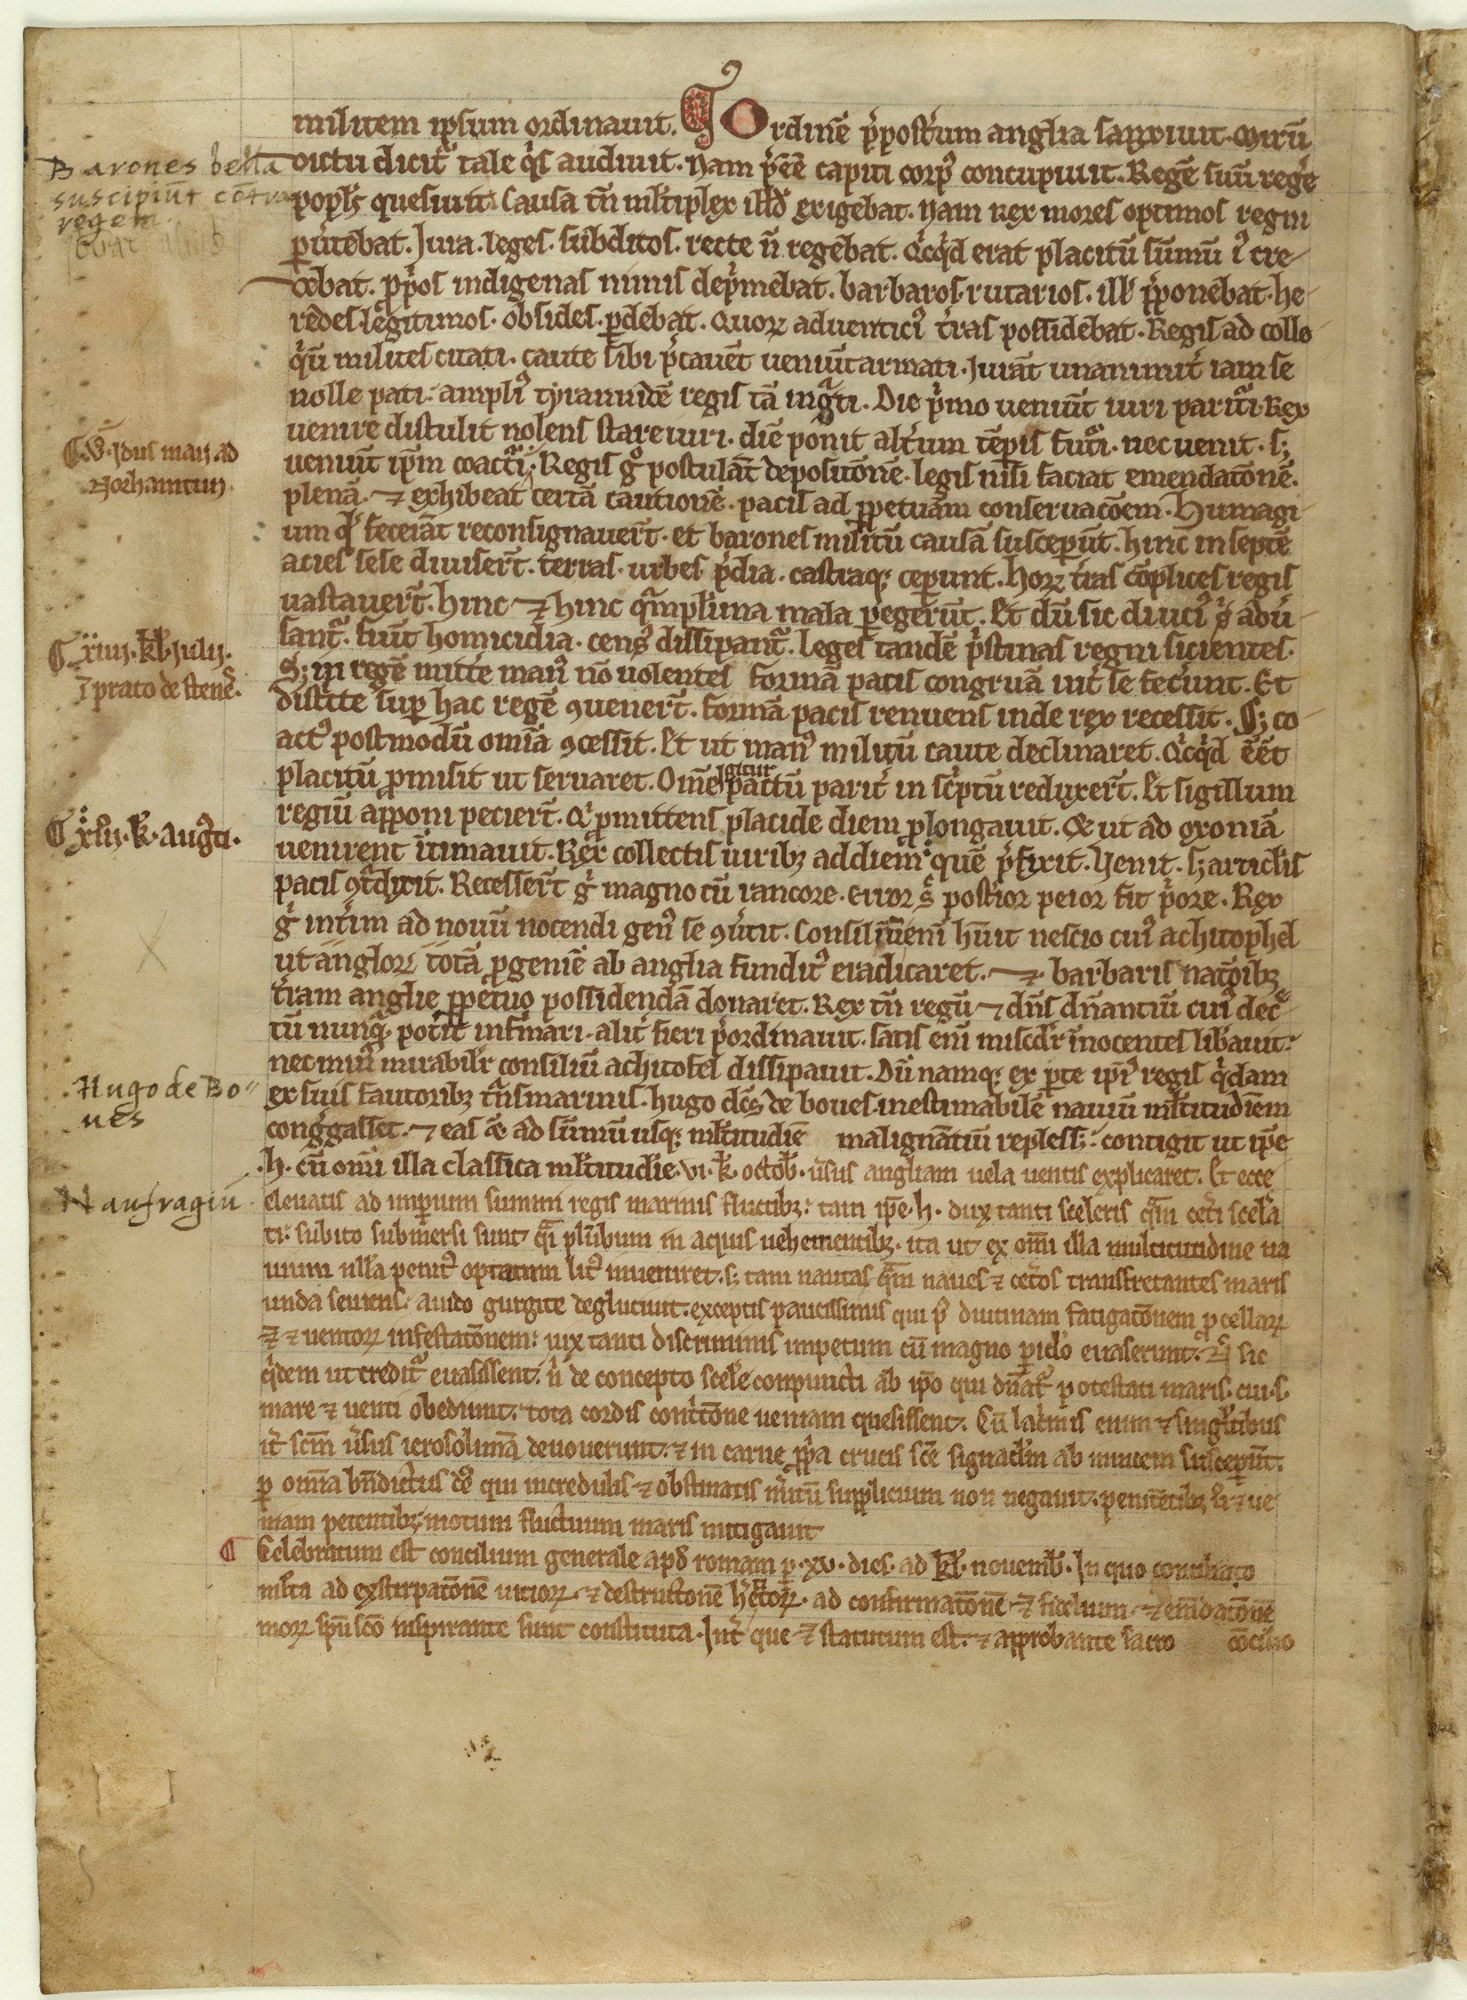 militem ip̄sum ordinauit. Ordinē p̄post̄um anglia sanxiuit. Mirū
Barones bella
suscipiūt cōtra
regem
dictu dicit᷑ tale q̇s audiuit. Nam p̄ēē capiti corp᷒ concupiuit. Regē suū reḡe
popl᷒ quesiuit. Causa tn̄ ml̄tiplex illḋ exigebat. Nam rex mores optimos regni
p̄uertebat. Iura. leges. subditos. recte n̄ regebat. Q̇cq̇d erat placitū sūmū i᷒ cre-
debat. p̱p̄os indigenas nimis dep̄mebat. barbaros. rutarios. ill̄ p̄ponebat. he-
redes legitimos. obsides. ꝑdebat. Quoꝝ aduentici᷒ t̄ras possidebat. Regis ad collo-
q̇ū milites citati. caute sibi p̄cauēt ueniūt armati. Iurāt unanimit̄ iam se
nolle pati. ampli᷒ tyrannidē regis tā ing̾ti. Die p̄mo ueniūt iuri parit᷑i. Rex
¶ V. Idus maii ad
Norhamtun.
uenire distulit nolens stare iuri. diē ponit alt̄um tēpis fut᷑i. nec uenit. s;
ueniūt ip̄m coact᷑i. Regis g̊ postulāt depositionē. legis nisi faciat emendatōnē.
plenā. ⁊ exhibeat certā cautionē. pacis ad ꝑpetuam conseruacōem. Humagi-
um qḋ fecerāt reconsignauer̄t. et barones militū causā susceperūt. hinc in septē
acies sese diuiser̄t. terras. urbes p̄dia. castraq; ceperunt. Hoꝝ t̄ras cōplices regis
uastauer̄t. hinc ⁊ hinc q̾mpl̄ima mala ꝑegerūt. Et dū sic diuci᷒ s̄ adū̄-
¶ xiiii. kl̄. Iulii.
ī prato de stenē.
sant᷑. fiūt homicidia. cens᷒ dissipant᷑. Leges tandē p̄stinas regni sicientes.
S; in regē mitte man᷒ nō uolentes formā pacis congruā int̄ se fec̄unt. Et
disc̄te sup̱ hac regē ꝯuener̄t. formā pacis renuens inde rex recessit. S; co-
act᷒ postmodū om̄ia ꝯcessit. Et ut man᷒ militū caute declinaret. Q̇cq̇d eēt
placitū ꝓmisit ut seruaret. Om̄e igitur pactū parit̄ in sc̄ptū reduxer̄t. Et sigillum
¶ xvii. k̄. Augͣti.
regiū apponi pecier̄t. Q̇ ꝓmittens placide diem ꝓlongauit. & ut ad oxoniā
uenirent ītimauit. Rex collectis uiribꝫ ad diem quē p̄fixit. Venit. s; articl̄is
pacis ꝯt̄dixit. Recesser̄t g̊ magno cū rancore. error s̄ post̄ior peior fit p̄ore. Rex
g̊ int̄im ad nouū nocendi gen᷒ se ꝯu̅tit. Consiliū eni h̄uit nescio cui᷒ achitophel
ut angloꝝ totā ꝓgeniē ab anglia fundit᷒ eradicaret. ⁊ barbaris nac̄oibꝫ
t̄ram anglie ꝑpetuo possidendā donaret. Rex tn̄ regū ⁊ dn̄s dn̄antiū cui᷒ dec̄-
tū nunq̾ potit̄ infirmari. alit̄ fieri p̄ordinauit. satis eni mis̄cdr̄ inocentes lib̄auit.
nec min᷒ mirabilr̄ consiliū achitofel dissipauit. Dū namq; ex ꝑte ip̄i᷒ regis q̇dam
Hugo de Bo-
ues
ex suis fautoribꝫ t̄nsmarinis. hugo dc̄s de boues. inestimabilē nauiū ml̄titudinem
cong̾gasset. ⁊ eas & ad sūmū usq; ml̄titudiē malignātiū repless;. contigit ut ip̄e
.H. cū omī illa classica ml̄titudīe. vi. k̄. octob̄. u̅sus angliam uela uentis explicaret. Et ecce
Naufragiū
eleuatis ad imp̱ium summi regis marinis fluctibꝫ. tam ip̄e. h. dux tanti sceleris q̾m cet̄i scel̄a-
ti. subito submersi sunt q̾i plūbum in aquis uehementibꝫ. ita ut ex om̄i illa multitudine na-
uium null̄a penit᷒ optatum lit᷒ inueniret. s; tam nautas q̾m naues ⁊ cet̄os transfretantes maris
unda seuiens. auido gurgite deglutiuit. exceptis paucissimis qui p᷒ diutinam fatigatōnem ꝓcellaꝝ
⁊ uentoꝝ infestatōnem. uix tanti discriminis impetum cū magno ꝑic̄lo euaserunt. N̄ sic
q̇dem ut credit᷑ euasissent. n̄ de concepto scel̄e conpuncti ab ip̄o qui dn̄at᷑ potestati maris. cui. s.
mare ⁊ uenti obediunt. tota cordis cont̄tōne ueniam quesissent. Cū lac̄mis enim ⁊ singl̄tibus
it̄ scm̄ u̅sus ierosolimā deuouerunt. ⁊ in carne ꝓp̄a crucis sc̄e signacl̄m ab inuicem susceperūt.
ꝑ om̄ia bn̄dictus d̄s qui incredulis ⁊ obstinatis m̄itū supplicium non negauit. penitētibꝫ ⁊ ue-
niam petentibꝫ. motum fluctuum maris mitigauit
¶ Celebratum est concilium generale apd̄ romam ꝑ. xv. dies. ad kl̄. nouemb̄. In quo concilio
ml̄ta ad exstirpatōnē uicioꝝ. ⁊ destructōnē h̄eticoꝝ. ad confirmatōnē fidelium. ⁊ em̄datōnē
moꝝ sp̄u sc̄o inspirante sunt constituta. Int̄ que ⁊ statutum est. ⁊ approbante sacro cōcilio